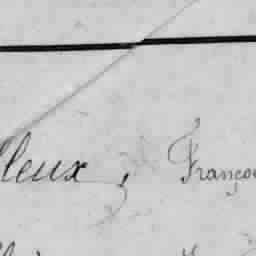 lleux, Françoi